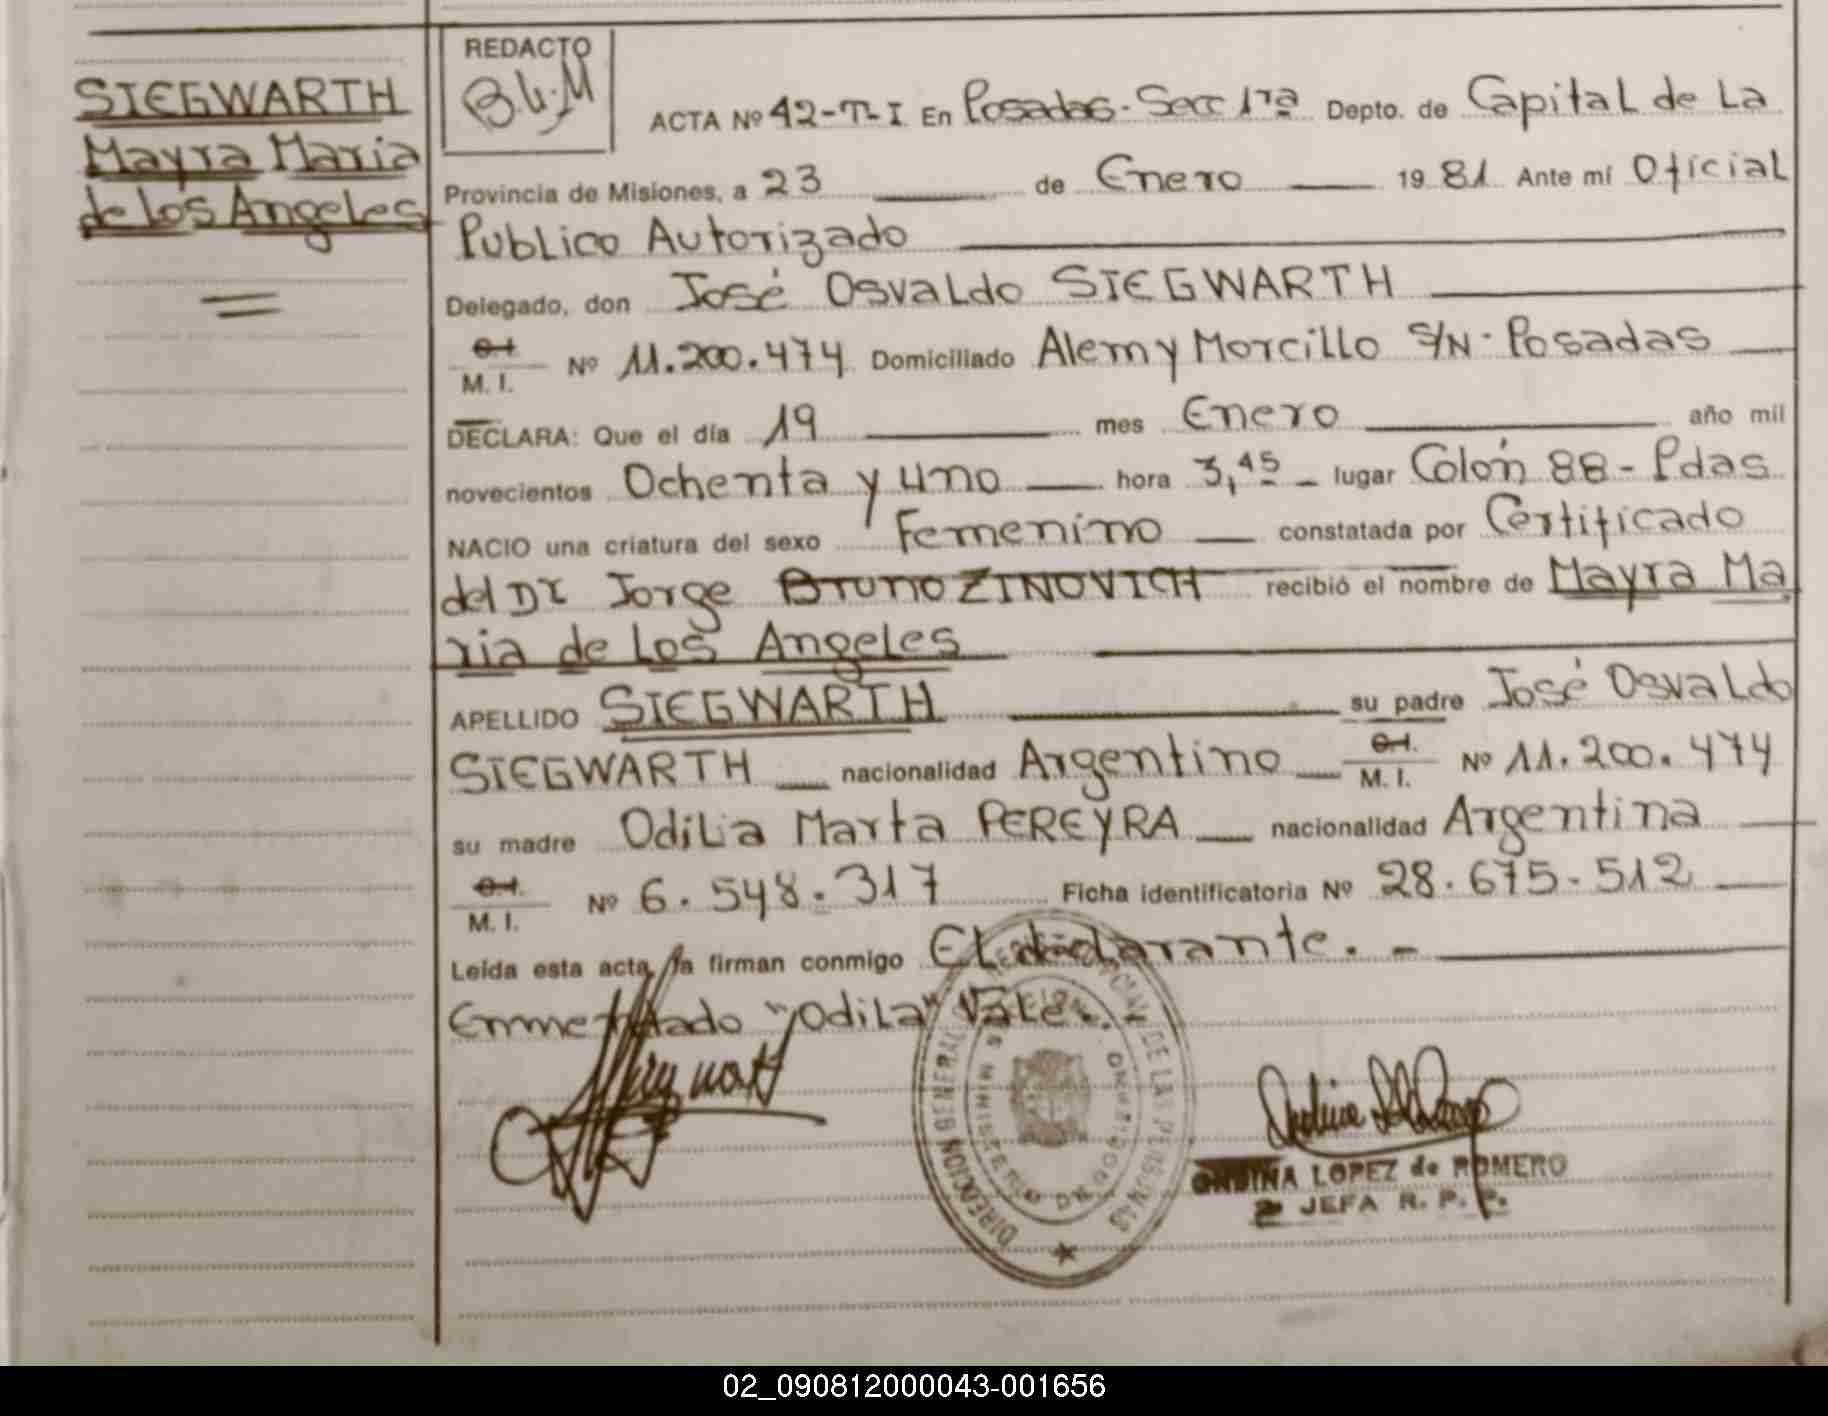 SIEGWARTH
Mayra Maria
de los Angeles
REDACTO
ACTA Nº 42-T-I En Posadas-Secc 1ra Depto. de Capital de La
Provincia de Misiones, a 23 de Enero 1981 Ante mí Oficial
Publico Autorizado
Delegado, don José Osvaldo SIEGWARTH
C.I. / M. I. Nº 11.200.474 Domiciliado Alem y Morcillo S/N-Posadas
DECLARA: Que el día 19 mes Enero año mil
novecientos Ochenta y uno hora 3,45 lugar Colón 88-Pdas
NACIO una criatura del sexo Femenino constatada por Certificado
del Dr Jorge Bruno ZINOVICH recibió el nombre de Mayra Ma
ria de los Angeles
APELLIDO SIEGWARTH su padre José Osvaldo
SIEGWARTH nacionalidad Argentino C.I. / M. I. Nº 11.200.474
su madre Odila Marta PEREYRA nacionalidad Argentina
C.I. / M. I. Nº 6.548.317 Ficha identificatoria Nº 28.675-512
Leída esta acta, la firman conmigo El declarante.-
Enmendado "Odila" Vale.
DIRECCION GENERAL DE LAS PERSONAS
MINISTERIO DE GOBIERNO
LOPEZ de ROMERO
JEFA R. P. P.
02_090812000043-001656